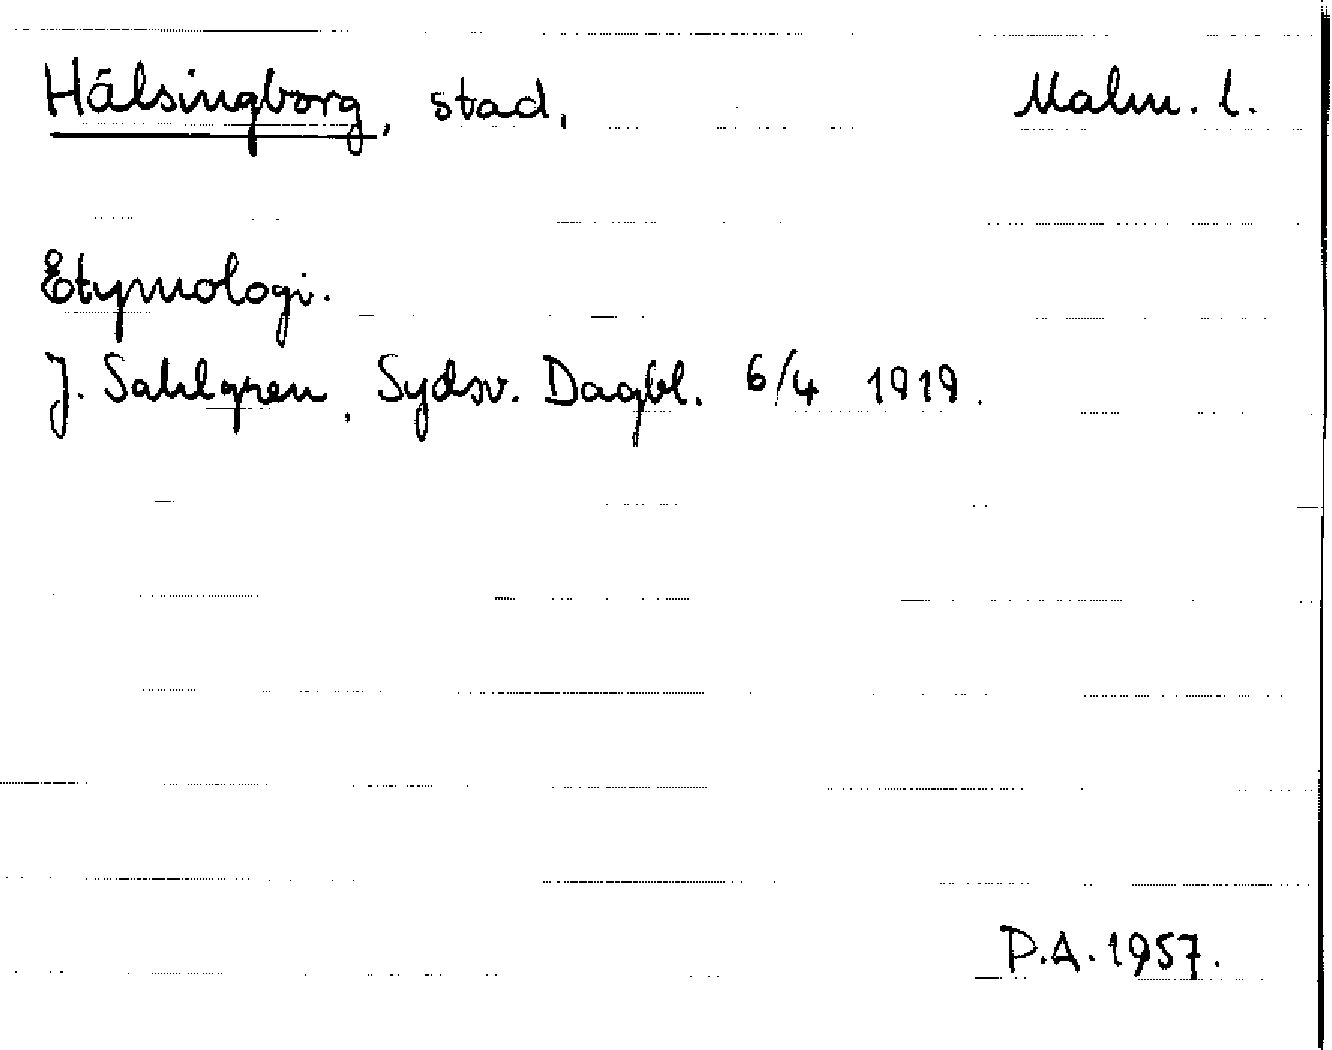 Hälsingborg, stad, Malm. l.
Etymologi.
J. Sahlgren, Sydsv. Dagbl. 6/4 1919.
P.A. 1957.